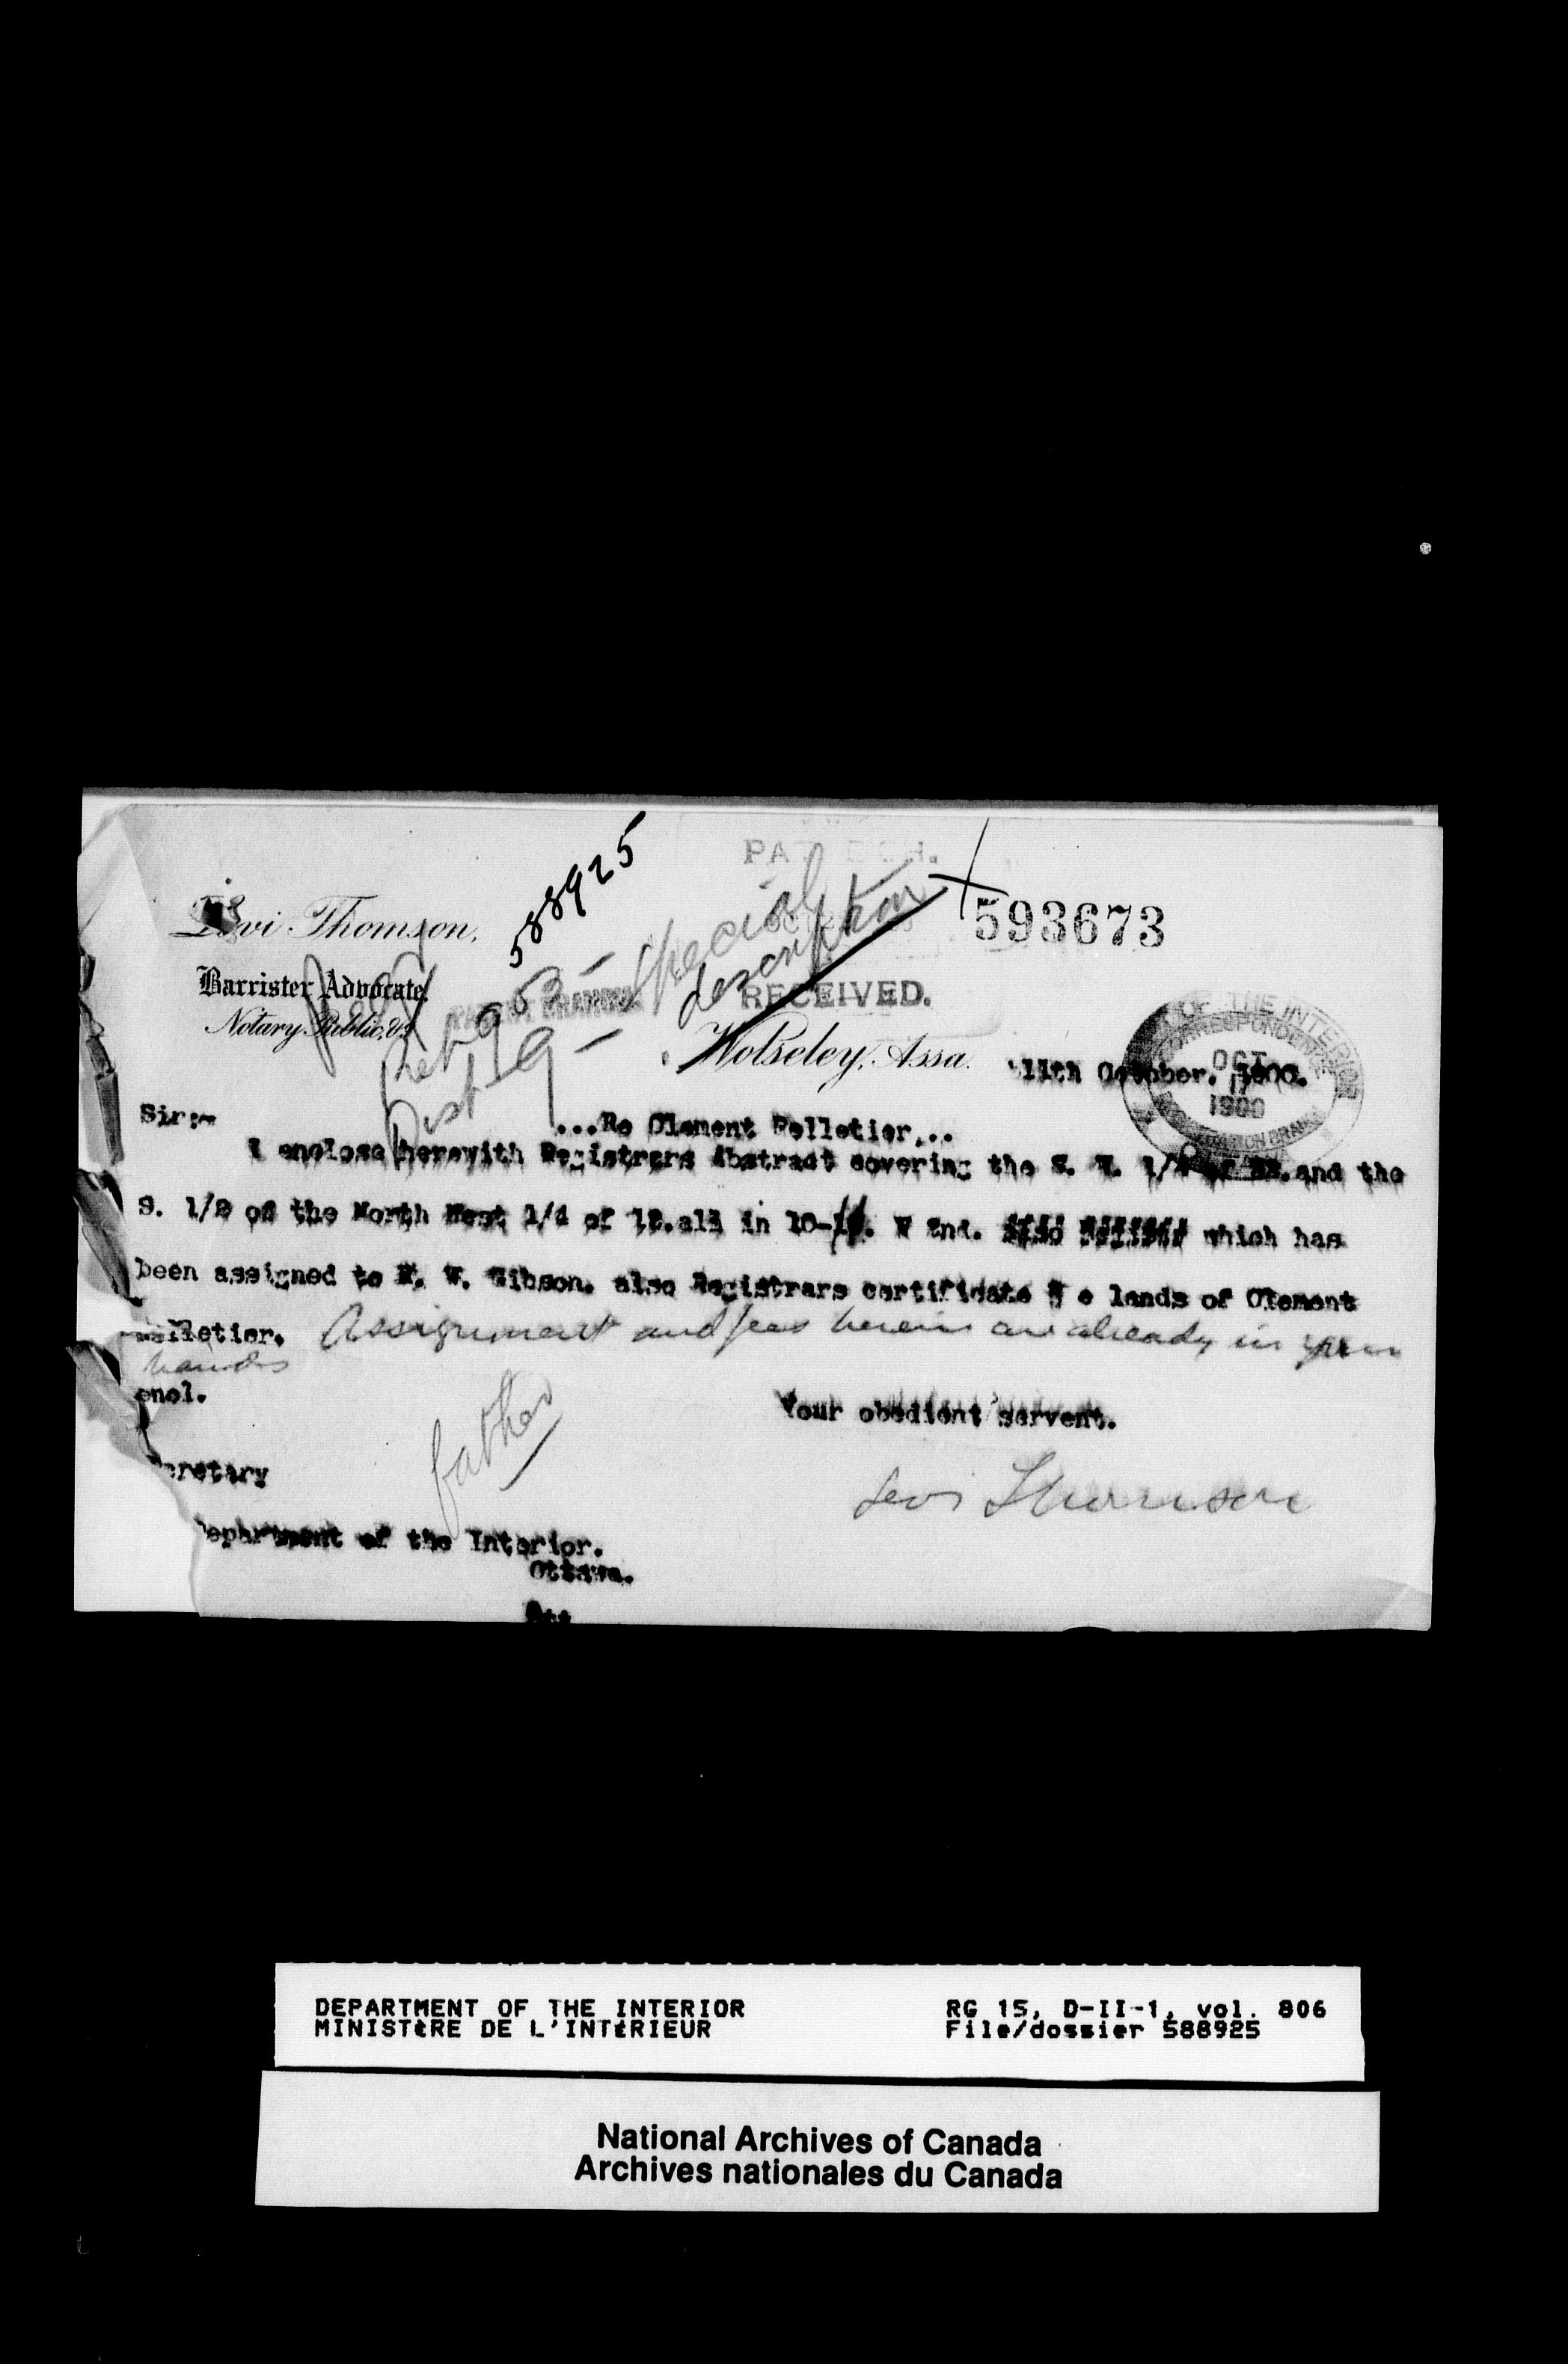 588925
PAT
Special
description
593673
Levi Thomson,
Barrister Advocate
Notary Public, &c
RECEIVED.
OF THE INTERIOR
CORRESPONDENCE
OCT
1900
Wolseley, Assa. 11th October. 1900.
Sir:-
...Re Clement Pelletier...
I enclose herewith Registrars Abstract covering the S. W. 1/4 and the
S. 1/2 of the North West 1/4 of 12.all in 10- W 2nd. which has
been assigned to W. Gibson. also Registrars certificate lands of Clement
Pelletier. Assignment and fees herein are already in your
hands
encl.
Your obedient servent.
father
Levi Thomson
ecretary
epartment of the Interior.
Ottawa.
DEPARTMENT OF THE INTERIOR
MINISTÈRE DE L'INTÉRIEUR
RG 15, D-II-1, vol. 806
File/dossier 588925
National Archives of Canada
Archives nationales du Canada